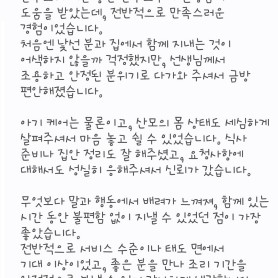 도움을 받았는데, 전반적으로 만족스러운
경험이었습니다.
처음엔 낯선 분과 집에서 함께 지내는 것이
어색하지 않을까 걱정했지만, 선생님께서
조용하고 안정된 분위기로 다가와 주셔서 금방
편안해졌습니다.
아기 케어는 물론이고, 산모의 몸 상태도 세심하게
살펴주셔서 마음 놓고 쉴 수 있었습니다. 식사
준비나 집안 정리도 잘 해주셨고, 요청사항에
대해서도 성실히 응해주셔서 신뢰가 갔습니다.
무엇보다 말과 행동에서 배려가 느껴져, 함께 있는
시간 동안 불편함 없이 지낼 수 있었던 점이 가장
좋았습니다.
전반적으로 서비스 수준이나 태도 면에서
기대 이상이었고, 좋은 분을 만나 조리 기간을